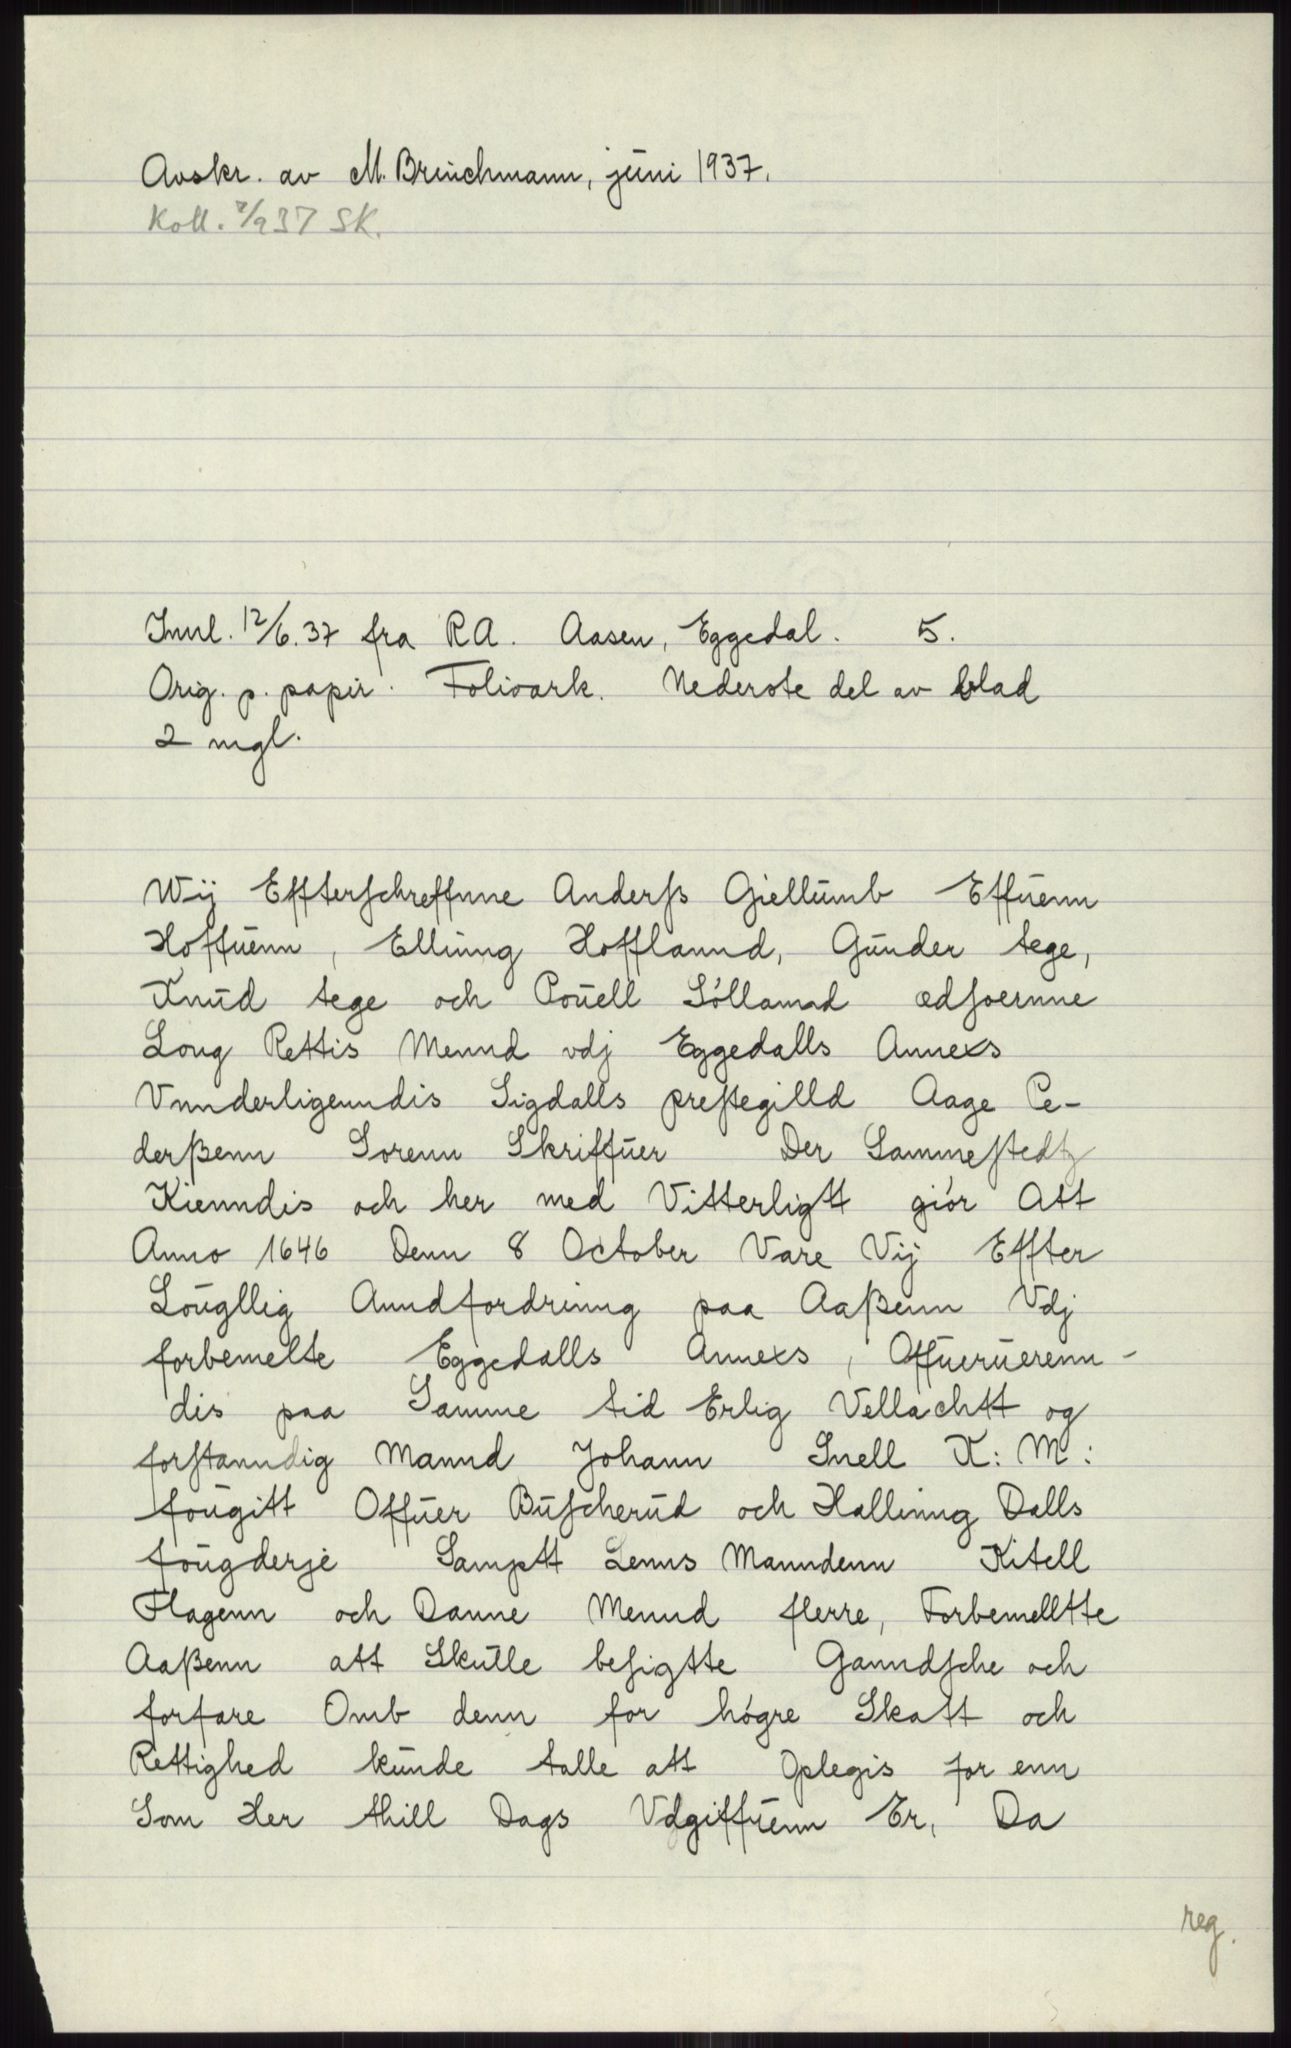 Avskr. av M. Brinchmann, juni 1937.
Koll. 2/9 37 SK.
Innl. 12/6. 37 fra RA. Aasen, Eggedal. 5.
Orig. p. papir. Folioark. Nederste del av blad
2 mgl.
Wij Effterschreffnne Anderss Giellumb Effuenn
Hoffuenn, Ellinng Hofflannd, Gunder tege,
Knud tege och Pouell Sóllannd edsoernne
Loug Rettis Mennd vdj Eggedalls Annexs
Vnnderligenndis Sigdalls prestegilld Aage Pe-
derßenn Sorenn Skriffuer Der Sammestedtz
Kienndis och her med Vitterligtt giór Att
Anno 1646 Denn 8 October Vare Vij Effter
Lougllig Anndfordrinng paa Aaßenn Vdj
forbemelte Eggedalls Annexs, Offueruerenn-
dis paa Samme tid Erlig Vellachtt og
forstanndig Mannd Johann Snell K: M:
fougitt Offuer Buscherud och Hallinng Dalls
fougderje Samptt Lenns Manndenn Kitell
Hagenn och Danne Mennd flerre, Forbemelltte
Aaßenn att Skulle besigtte Ganndsche och
forfare Omb denn for hógre Skatt och
Rettighed kunde talle att Oplegis for enn
Som Her thill Dags Vdgiffuenn Er, Da
reg.